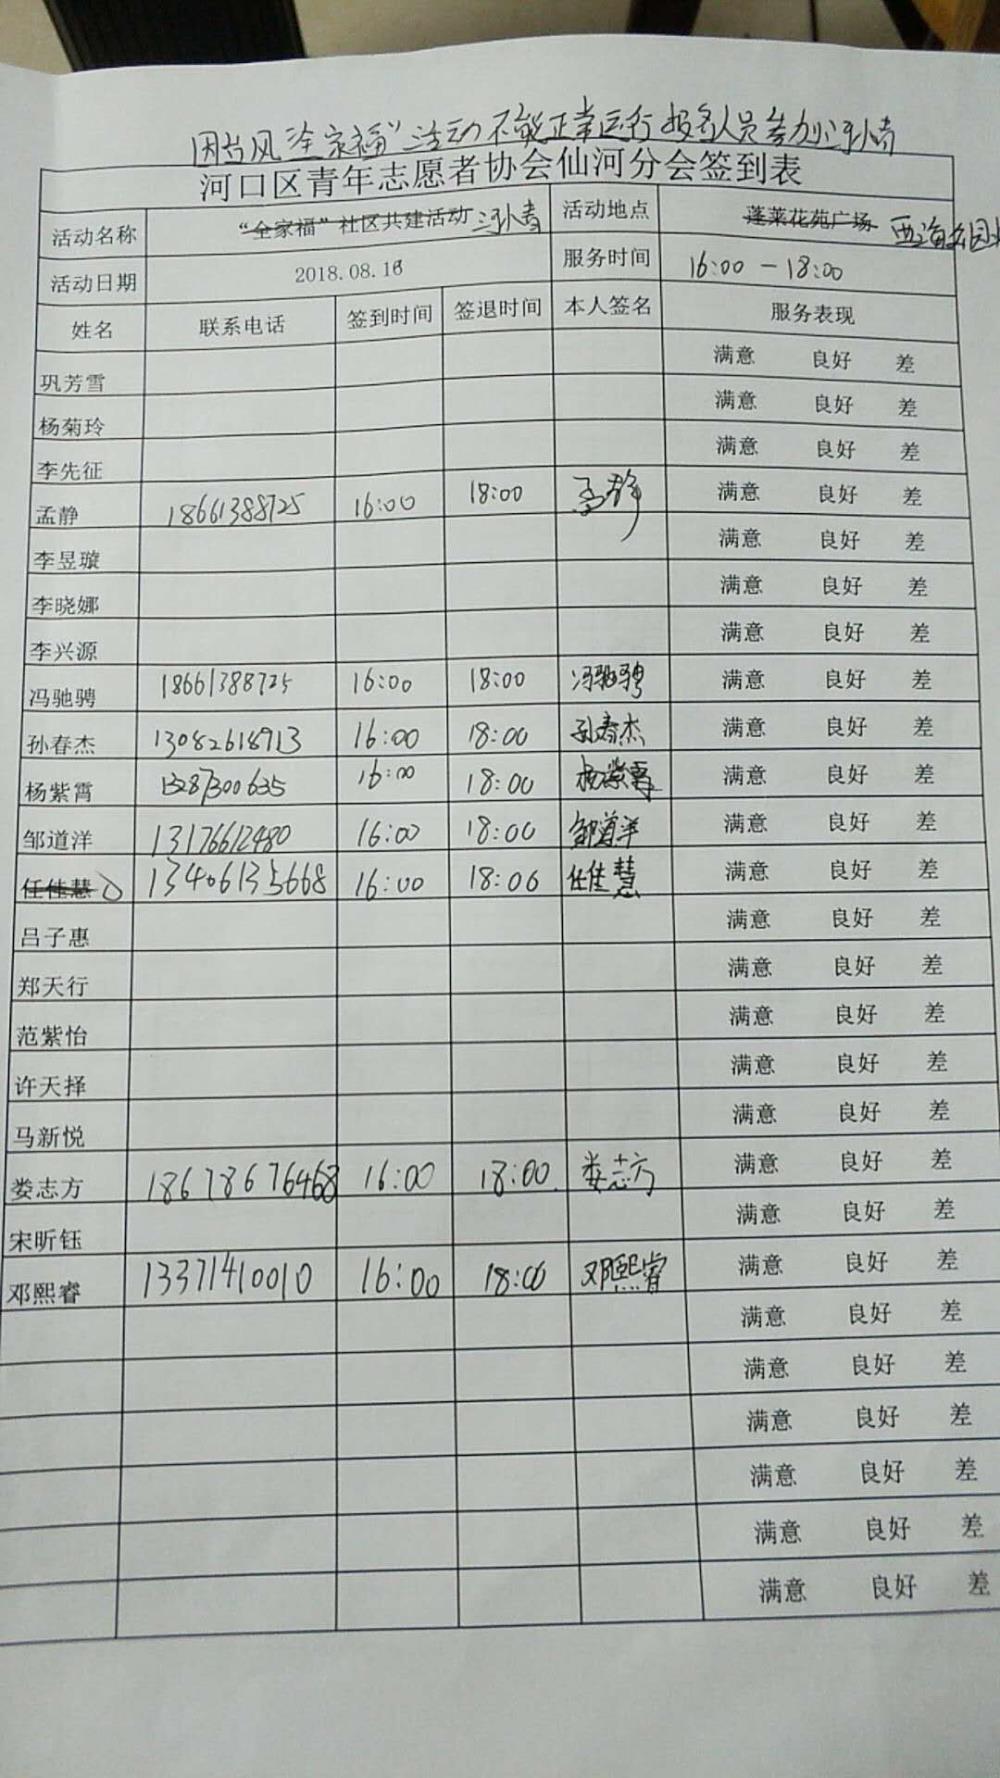 因台风“全家福”活动不能正常运行 报名人员参加
河口区青年志愿者协会仙河分会签到表
活动名称 “全家福”社区共建活动 活动地点 蓬莱花苑广场
活动日期 2018.08.16 服务时间 16:00 — 18:00
姓名 联系电话 签到时间 签退时间 本人签名 服务表现
巩芳雪 满意 良好 差
杨菊玲 满意 良好 差
李先征 满意 良好 差
孟静 18661388725 16:00 18:00 孟静 满意 良好 差
李昱璇 满意 良好 差
李晓娜 满意 良好 差
李兴源 满意 良好 差
冯驰骋 18661388725 16:00 18:00 冯驰骋 满意 良好 差
孙春杰 13082618913 16:00 18:00 孙春杰 满意 良好 差
杨紫霄 16:00 18:00 杨紫霄 满意 良好 差
邹道洋 13176612480 16:00 18:00 邹道洋 满意 良好 差
任佳慧 13406135668 16:00 18:00 任佳慧 满意 良好 差
吕子惠 满意 良好 差
郑天行 满意 良好 差
范紫怡 满意 良好 差
许天择 满意 良好 差
马新悦 满意 良好 差
娄志方 18678676468 16:00 18:00 娄志方 满意 良好 差
宋昕钰 满意 良好 差
邓熙睿 13371410010 16:00 18:00 邓熙睿 满意 良好 差
满意 良好 差
满意 良好 差
满意 良好 差
满意 良好 差
满意 良好 差
满意 良好 差